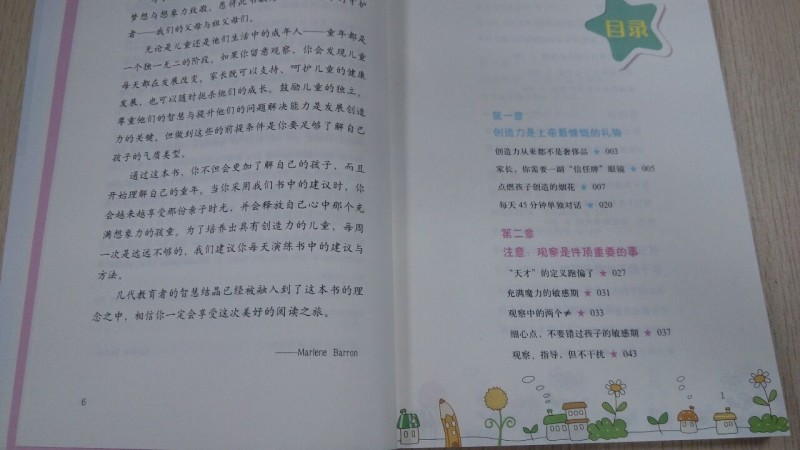 梦想与想象力致敬，愿将此书献
者——我们的父母与祖父母们。
无论是儿童还是他们生活中的成年人——童年都是
一个独一无二的阶段。如果你留意观察，你会发现儿童
每天都在发展改变。家长既可以支持、呵护儿童的健康
发展，也可以随时扼杀他们的成长。鼓励儿童的独立，
尊重他们的智慧与提升他们的问题解决能力是发展创造
力的关键。但做到这些的前提条件是你要足够了解自己
孩子的气质类型。
通过这本书，你不但会更加了解自己的孩子，而且
开始理解自己的童年。当你采用我们书中的建议时，你
会越来越享受那份亲子时光，并会释放自己心中那个充
满想象力的孩童。为了培养出具有创造力的儿童，每周
一次是远远不够的，我们建议你每天演练书中的建议与
方法。
几代教育者的智慧结晶已经被融入到了这本书的理
念之中，相信你一定会享受这次美好的阅读之旅。
——Marlene Barron
6
目录
第一章
创造力是上帝最慷慨的礼物
创造力从来都不是奢侈品 ★ 003
家长，你需要一副“信任牌”眼镜 ★ 005
点燃孩子创造的烟花 ★ 007
每天 45 分钟单独对话 ★ 020
第二章
注意：观察是件顶重要的事
“天才”的定义跑偏了 ★ 027
充满魔力的敏感期 ★ 031
观察中的两个≠ ★ 033
细心点，不要错过孩子的敏感期 ★ 037
观察，指导，但不干扰 ★ 043
1